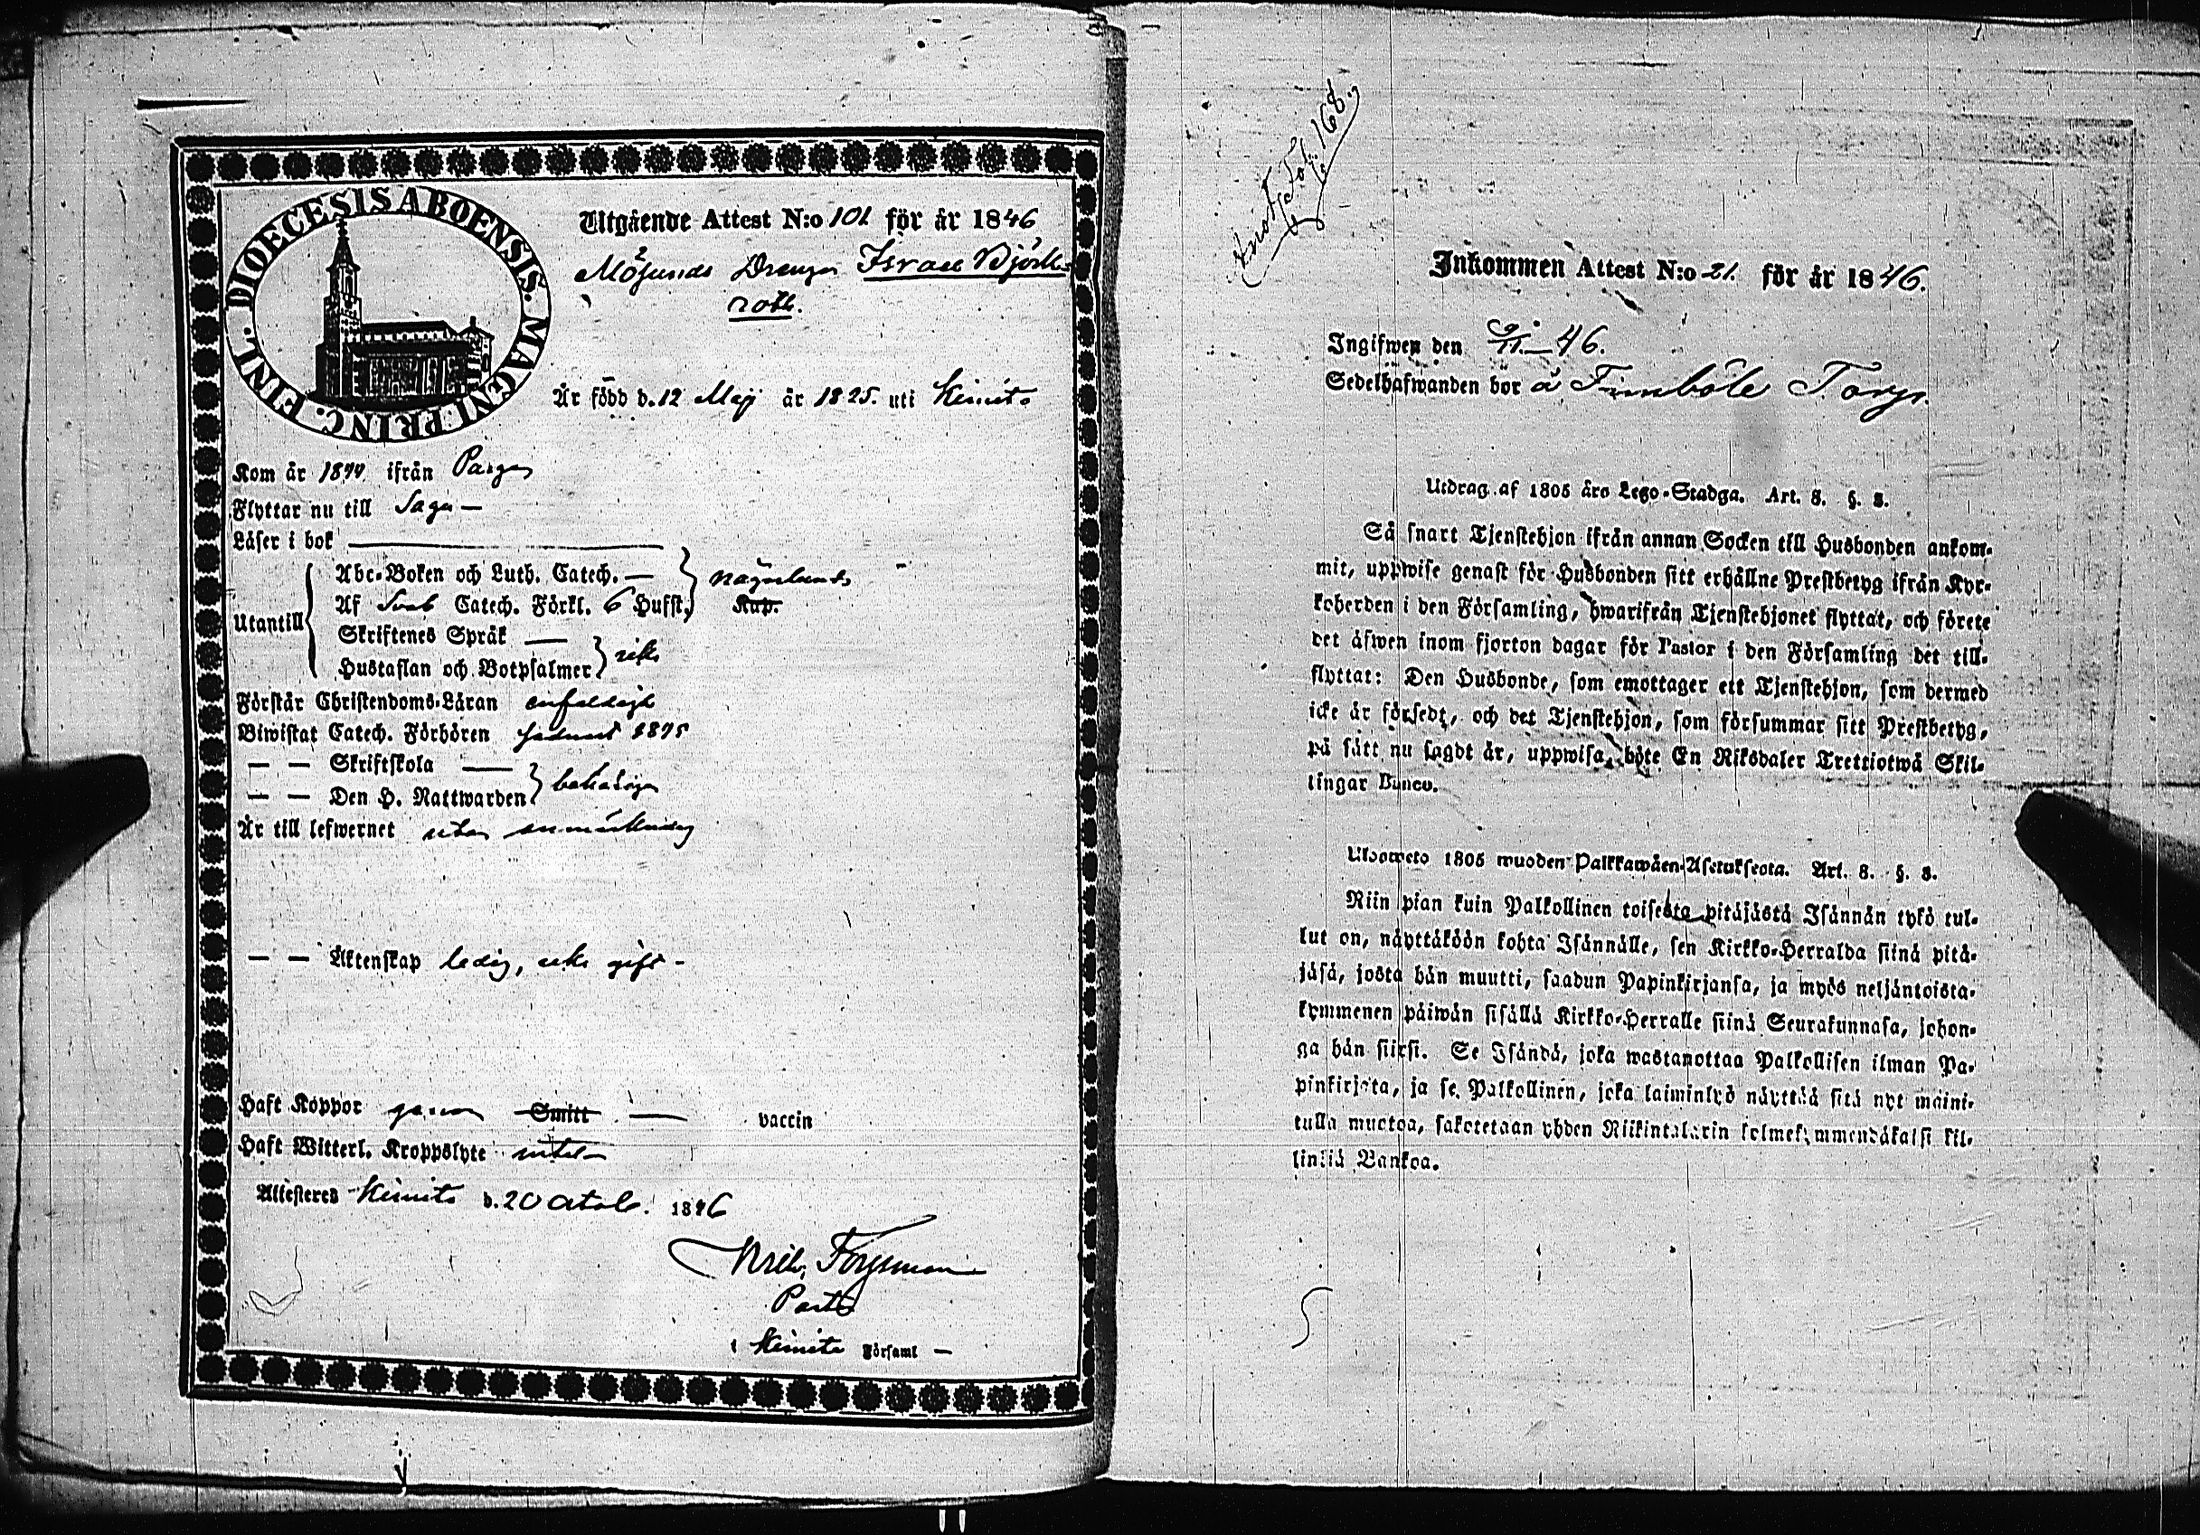 DIOECESIS ABOENSIS. MAGNI PRINC. FINL.
Utgående Attest N:o 101 för år 1846
Drengen Israel Björk-
roth.
Är född d. 12 Maji år 1825. uti Kimito
Kom år 1844 ifrån Pargas
Flyttar nu till Sagu —
Läser i bok —
Utantill
Abc-Boken och Luth. Catech. — någorlunda
Af Sveb Catech. Förkl. 6 Hufst. Kap.
Skriftenes Språk —
Hustaflan och Botpsalmer icke
Förstår Christendoms-Läran enfaldigt
Biwistat Catech. Förhören 1845
— — Skriftskola —
— — Den H. Nattwarden behörigen
Är till lefwernet utan anmärkning
— — Äktenskap ledig, icke gift -
Haft Koppor genom Smitt — vaccin
Haft Witterl. Kroppslyte intet
Attesteres Kimito d. 20 Octob. 1846
Forssman
Past
i Kimito Församl —
Fol. 168.
Inkommen Attest N:o 21. för år 1846.
Ingifwen den 9/11 — 46.
Sedelhafwanden bör å Fimböle Torp.
Utdrag af 1805 års Lego-Stadga. Art. 8. §. 8.
Så snart Tjenstehjon ifrån annan Socken till Husbonden ankom-
mit, uppwise genast för Husbonden sitt erhållne Prestbetyg ifrån Kyr-
koherden i den Församling, hwarifrån Tjenstehjonet flyttat, och förete
det äfwen inom fjorton dagar för Pastor i den Församling det till-
flyttat: Den Husbonde, som emottager ett Tjenstehjon, som dermed
icke är försedt, och det Tjenstehjon, som försummar sitt Prestbetyg,
på sätt nu sagdt är, uppwisa, böte En Riksdaler Trettiotwå Skil-
lingar Banco.
Ulosweto 1805 wuoden Palkkawäen-Asetuksesta. Art. 8. §. 8.
Niin pian kuin Palkollinen toisesta pitäjästä Isännän tykö tul-
lut on, näyttäköön kohta Isännälle, sen Kirkko-Herralda siinä pitä-
jäsä, josta hän muutti, saadun Papinkirjansa, ja myös neljäntoista-
kymmenen päiwän sisällä Kirkko-Herralle siinä Seurakunnasa, johon-
ga hän siirsi. Se Isändä, joka wastanottaa Palkollisen ilman Pa-
pinkirjata, ja se Palkollinen, joka laiminlyö näyttää sitä nyt maini-
tulla muotoa, sakotetaan yhden Riikintalarin kolmekymmendäkaksi kil-
lingiä Bankoa.